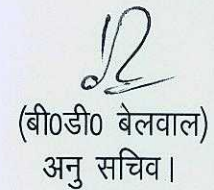 (बी0डी0 बेलवाल)
अनु सचिव।